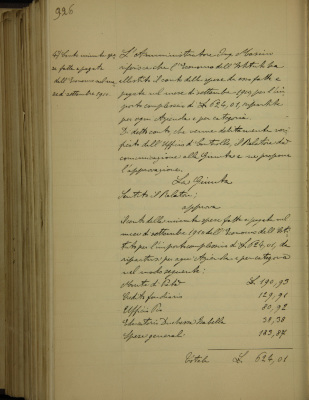 926
L'Amministratore Ing. Masino
riferisce che l'Economo dell'Istituto ha
allestito il conto delle spese da esso fatte e
pagate nel mese di settembre per l'im-
porto complessivo di £ 624,01, ripartibile
per ogni Azienda e per categoria.
Il detto conto che venne debitamente veri-
ficato dall'Ufficio di Controllo, il Relatore dà
comunicazione alla Giunta e ne propone
l'approvazione.
La Giunta
Sentito il Relatore;
approva
Il conto delle minute spese fatte e pagate nel
mese di settembre dall'Economo dell'Isti-
tuto per l'importo complessivo di £ 624,01, da
ripartirsi per ogni Azienda e per categoria
nel modo seguente:
Monte di Pietà £ 190,93
Credito fondiario 129,91
Ufficio Pio 80,92
Educatorio Duchessa Isabella 38,38
Spese generali 183,87
Totale £ 624,01